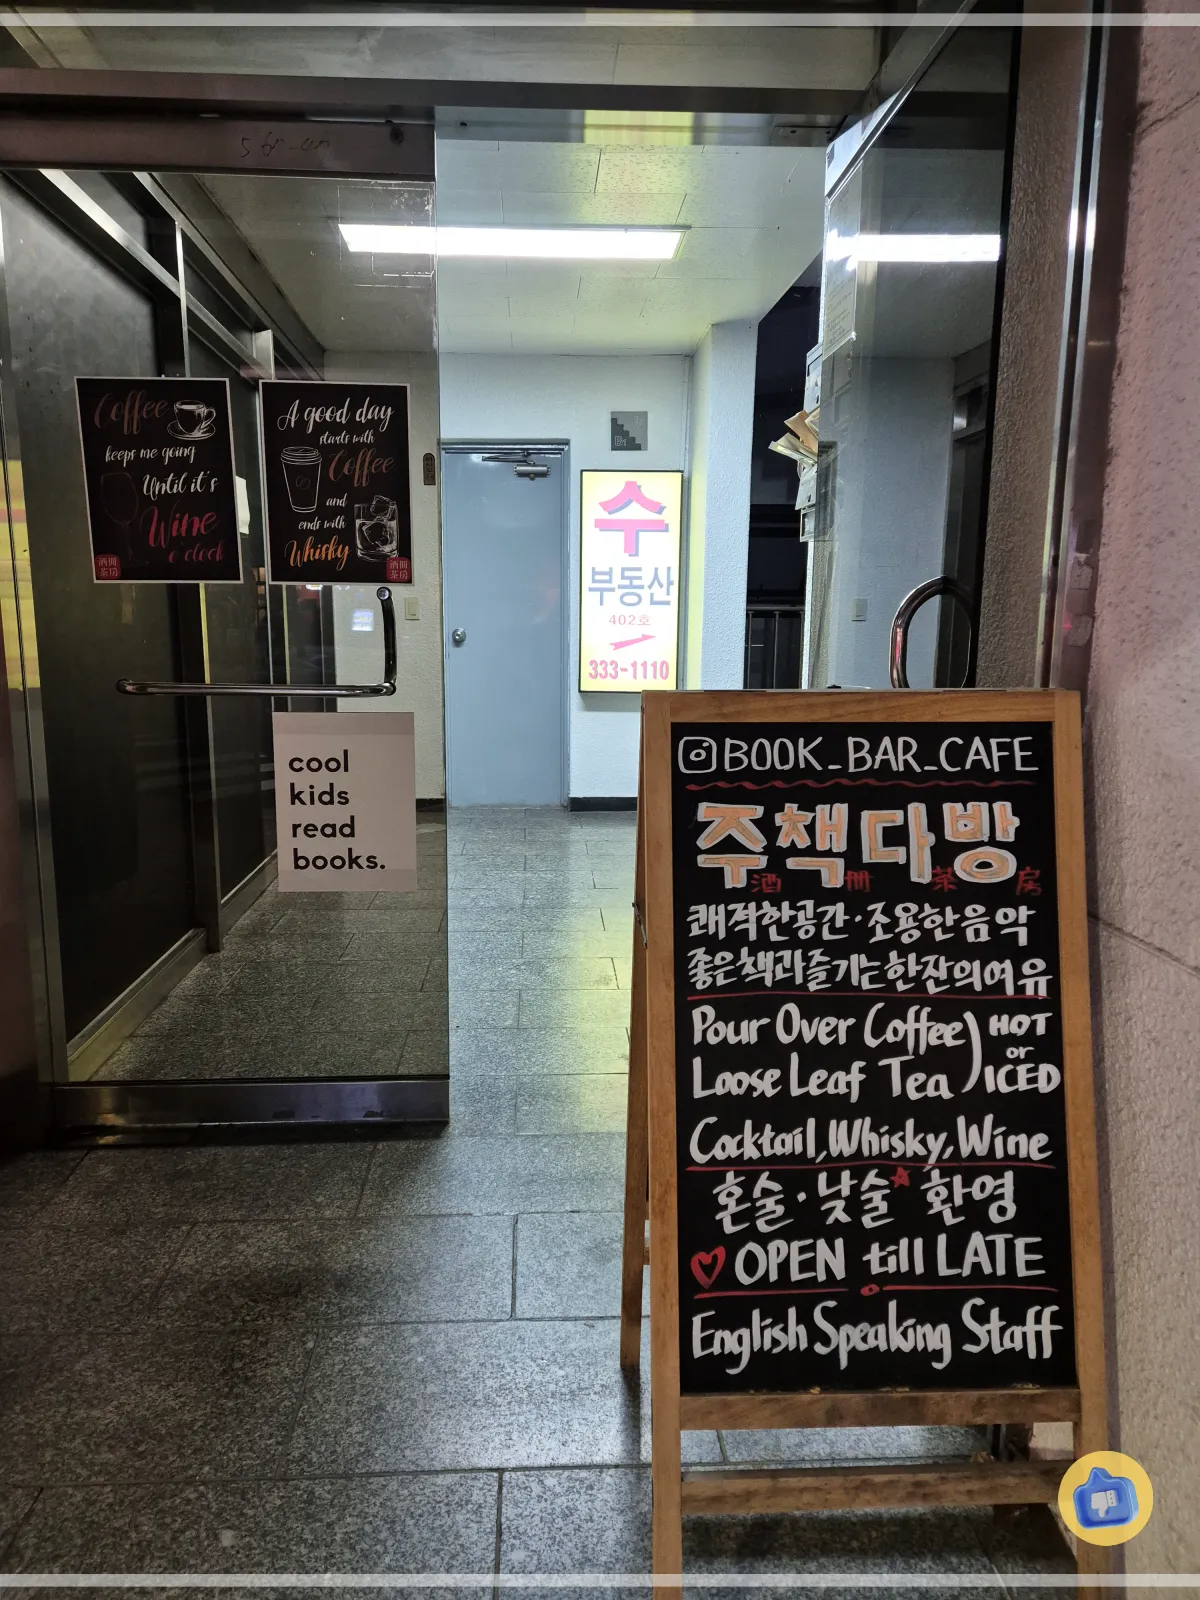 Coffee
keeps me going
Until it's
Wine
o'clock
酒冊
茶房
A good day
starts with
Coffee
and
ends with
Whisky
酒冊
茶房
cool
kids
read
books.
B1
수
부동산
402호
333-1110
BOOK_BAR_CAFE
주책다방
酒 冊 茶 房
쾌적한공간·조용한음악
좋은책과즐기는한잔의여유
Pour Over Coffee
Loose Leaf Tea
) HOT
or
ICED
Cocktail, Whisky, Wine
혼술·낮술 환영
OPEN till LATE
English Speaking Staff